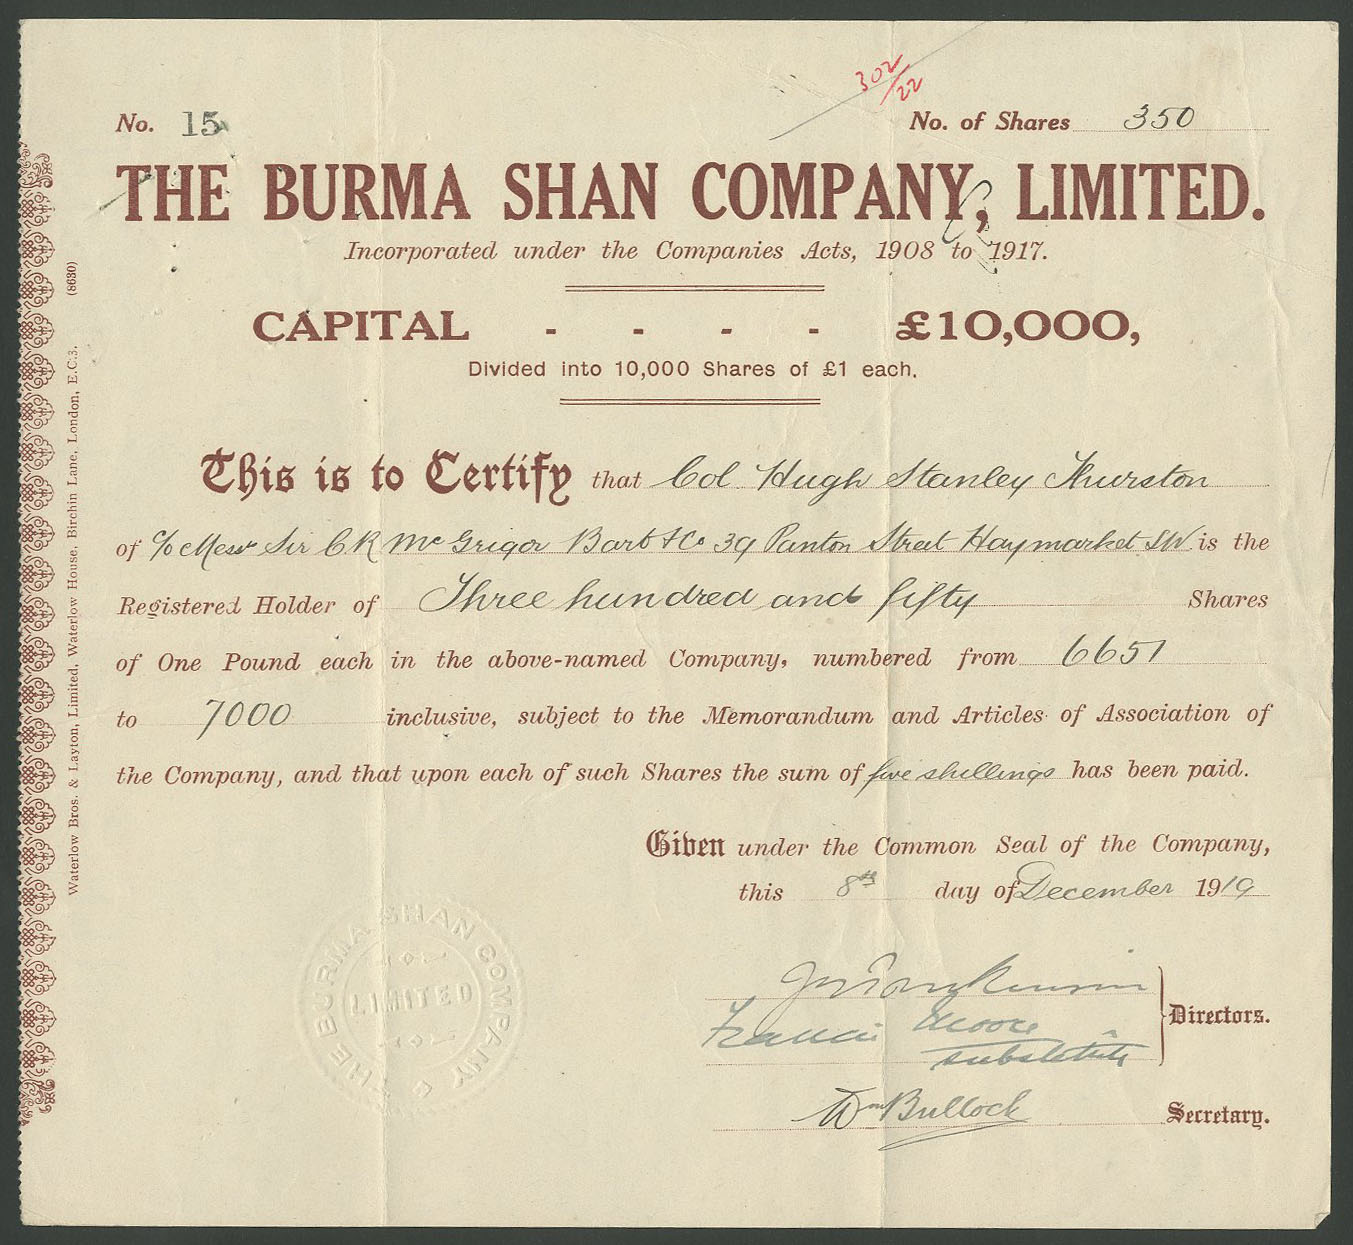 302/22
No. 15 No. of Shares 350
THE BURMA SHAN COMPANY, LIMITED.
Incorporated under the Companies Acts, 1908 to 1917.
CAPITAL - - - - £10,000,
Divided into 10,000 Shares of £1 each.
This is to Certify that Col Hugh Stanley Thurston
of c/o Messrs Sir C R McGrigor Bart & Co 39 Panton Street Haymarket SW is the
Registered Holder of Three hundred and fifty Shares
of One Pound each in the above-named Company, numbered from 6651
to 7000 inclusive, subject to the Memorandum and Articles of Association of
the Company, and that upon each of such Shares the sum of five shillings has been paid.
Given under the Common Seal of the Company,
this 8th day of December 1919
Francis Moore
substitute
Directors.
Wm Bullock Secretary.
THE BURMA SHAN COMPANY
LIMITED
Waterlow Bros. & Layton, Limited, Waterlow House, Birchin Lane, London, E.C.3. (8630)